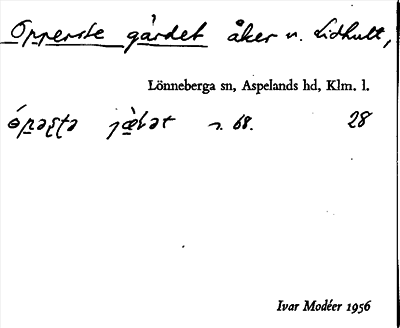 Opperste gärdet åker u. Lidhult,
Lönneberga sn, Aspelands hd, Klm. l.
n. 68. 28
Ivar Modéer 1956